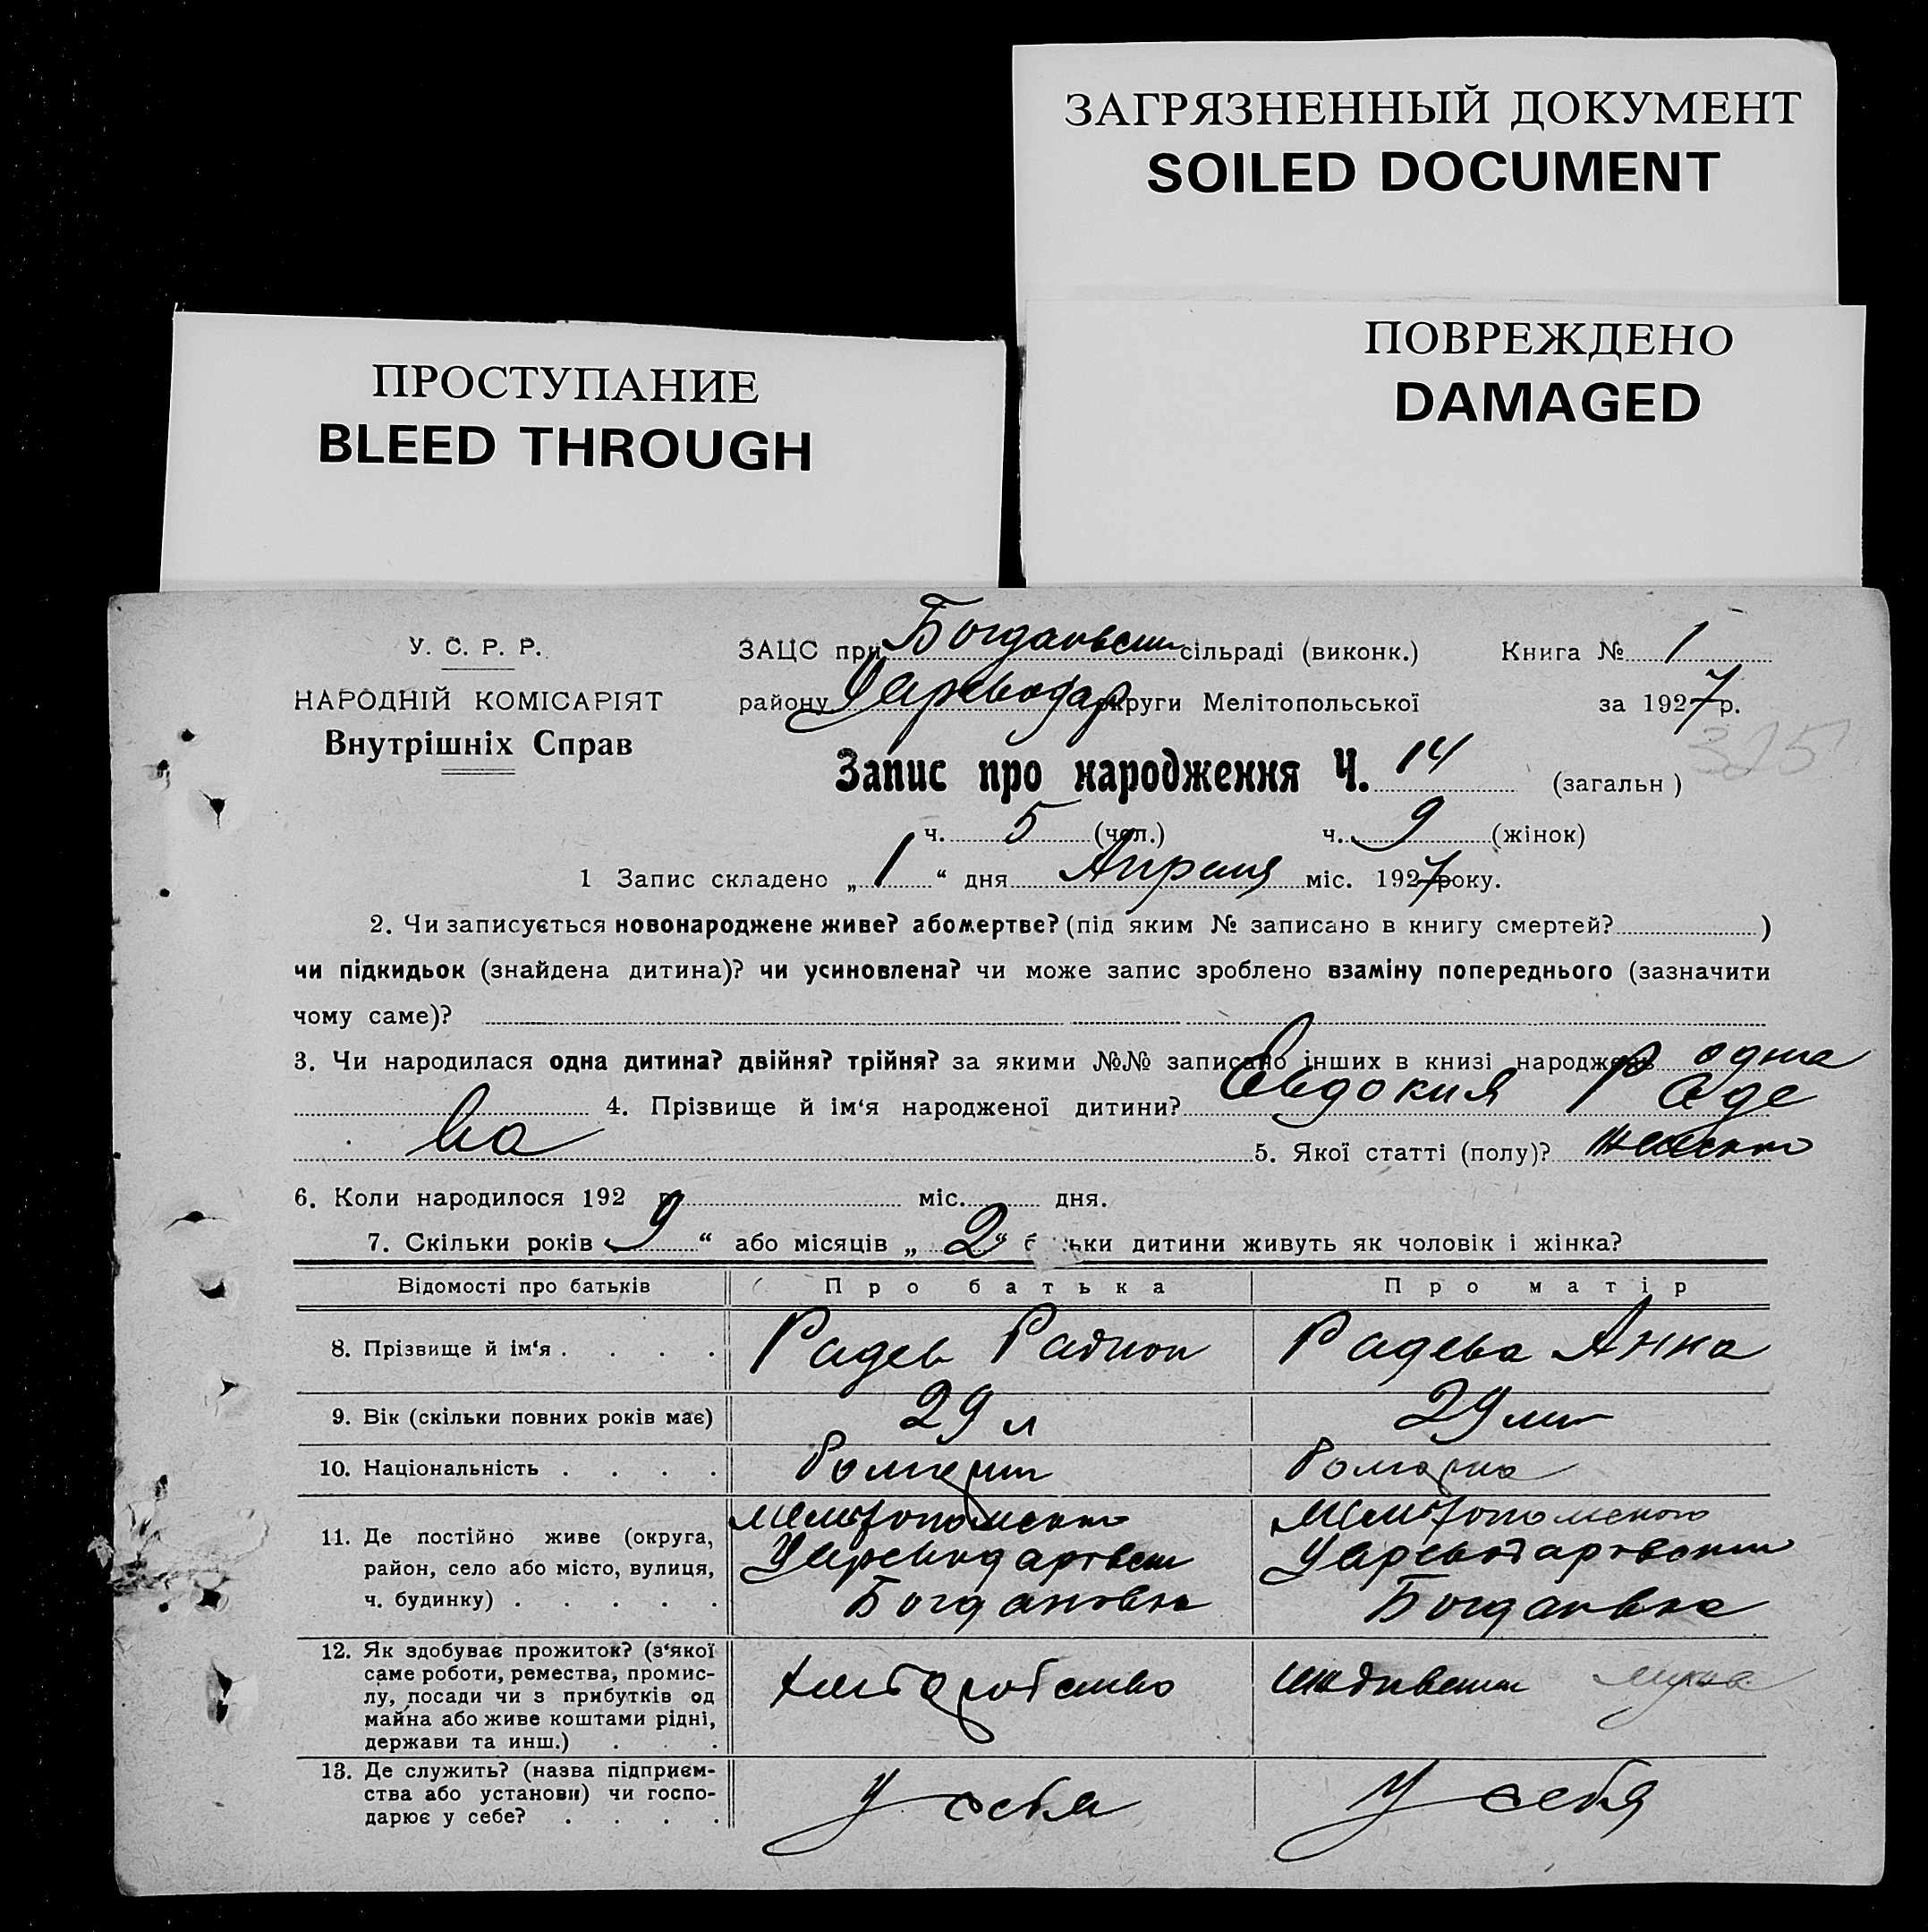 ЗАГРЯЗНЕННЫЙ ДОКУМЕНТ
SOILED DOCUMENT
ПРОСТУПАНИЕ
BLEED THROUGH
ПОВРЕЖДЕНО
DAMAGED
У. С. Р. Р.
НАРОДНІЙ КОМІСАРІЯТ
Внутрішніх Справ
ЗАЦС при Богдановском сільраді (виконк.) Книга № 1
району Цареводар округи Мелітопольської за 1927 р.
325
Запис про народження Ч. 14 (загальн)
ч. 5 (чол.) ч. 9 (жінок)
1 Запис складено „1“ дня Апреля міс. 1927 року.
2. Чи записується новонароджене живе? або мертве? (під яким № записано в книгу смертей? )
чи підкидьок (знайдена дитина)? чи усиновлена? чи може запис зроблено взаміну попереднього (зазначити
чому саме)?
3. Чи народилася одна дитина? двійня? трійня? за якими №№ записано інших в книзі народжень одна
4. Прізвище й ім‘я народженої дитини? Евдокия Раде
ва 5. Якої статті (полу)? женского
6. Коли народилося 192 р. міс. дня.
7. Скільки років 9 “ або місяців „ 2 “ батьки дитини живуть як чоловік і жінка?
Відомості про батьків Про батька Про матір
8. Прізвище й ім‘я . . . . Радев Радион Радева Анна
9. Вік (скільки повних років має) 29 л 29 лет
10. Національність . . . . болгарин болгарка
11. Де постійно живе (округа,
район, село або місто, вулиця,
ч. будинку) . . . . .
Мелитопольского
Цареводаровском
Богдановка
Мелитопольского
Цареводаровском
Богдановка
12. Як здобуває прожиток? (з‘якої
саме роботи, ремества, промис-
лу, посади чи з прибутків од
майна або живе коштами рідні,
держави та инш.) . . .
хлебаробство
иждивении мужа
13. Де служить? (назва підприєм-
ства або установи) чи госпо-
дарює у себе? . . . .
У себя
У себя